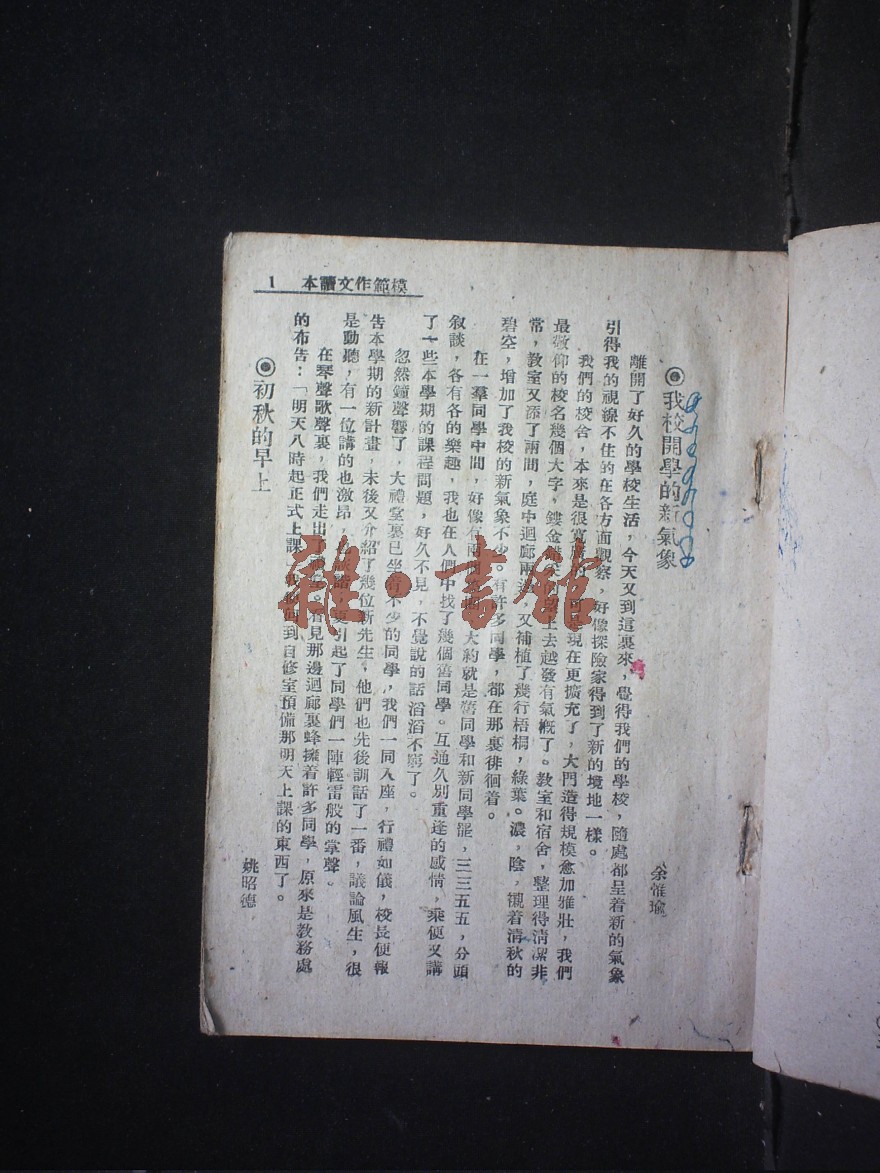 模範作文讀本 1
◉我校開學的新氣象
余惟瑜
離開了好久的學校生活，今天又到這裏來，覺得我們的學校，隨處都呈着新的氣象
引得我的視線不住的在各方面觀察，好像探險家得到了新的境地一樣。
我們的校舍，本來是很寬 現在更擴充了，大門造得規模愈加雅壯，我們
最敬仰的校名幾個大字，鏤金 上去越發有氣概了。教室和宿舍，整理得清潔非
常，教室又添了兩間，庭中迴廊兩 又補植了幾行梧桐，綠葉。濃，陰，襯着清秋的
碧空，增加了我校的新氣象不少。有許多同學，都在那裏徘徊着。
在一羣同學中間，好像有兩 大約就是舊同學和新同學罷，三三五五，分頭
叙談，各有各的樂趣，我也在人們中找了幾個舊同學。互通久別重逢的感情，乘便又講
了一些本學期的課程問題，好久不見，不覺說的話滔滔不窮了。
忽然鐘聲響了，大禮堂裏已坐着不少的同學，我們一同入座，行禮如儀，校長便報
告本學期的新計畫，末後又介紹了幾位新先生，他們也先後訓話了一番，議論風生，很
是動聽，有一位講的也激昂， 引起了同學們一陣輕雷般的掌聲。
在琴聲歌聲裏，我們走出 看見那邊迴廊裏蜂擁着許多同學，原來是教務處
的布告：「明天八時起正式上課 到自修室預備那明天上課的東西了。
◉初秋的早上
姚昭德
雜·書館